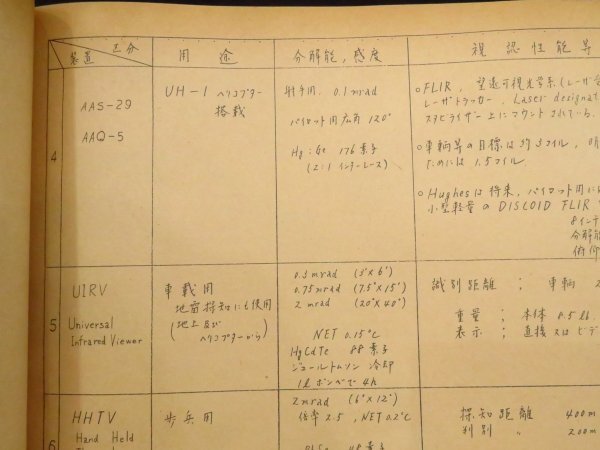 区分
装置
用途
分解能，感度
視認性能等
4
AAS-29
AAQ-5
UH-1 ヘリコプター
搭載
射手用 0.1mrad
パイロット用広角 120°
Hg:Ge 176素子
(2:1 インターレース)
○FLIR, 望遠可視光学系(レーザ
レーザトラッカー, Laser designat
スタビライザー上にマウントされている.
○車輌等の目標は約3コイル,
ためには 1.5コイル.
○Hughesは将来, パイロット用に
小型軽量の DISCOID FLIR
8インチ
分解能
5
UIRV
Universal
Infrared Viewer
車載用
地雷探知にも使用
(地上及び
ヘリコプターから)
0.5mrad (3°×6°)
0.75mrad (7.5°×15°)
2 mrad (20°×40°)
NET 0.15℃
HgCdTe 88素子
ジュールトムソン 冷却
1ℓボンベで 4h
識別距離 ; 車輌 2
重量 ; 本体 8.5 lb
表示 ; 直接又はビデ
6
HHTV
Hand Held
歩兵用
2mrad (6°×12°)
倍率 2.5 , NET 0.2℃
48素子
探知距離 400m
判別 〃 200m